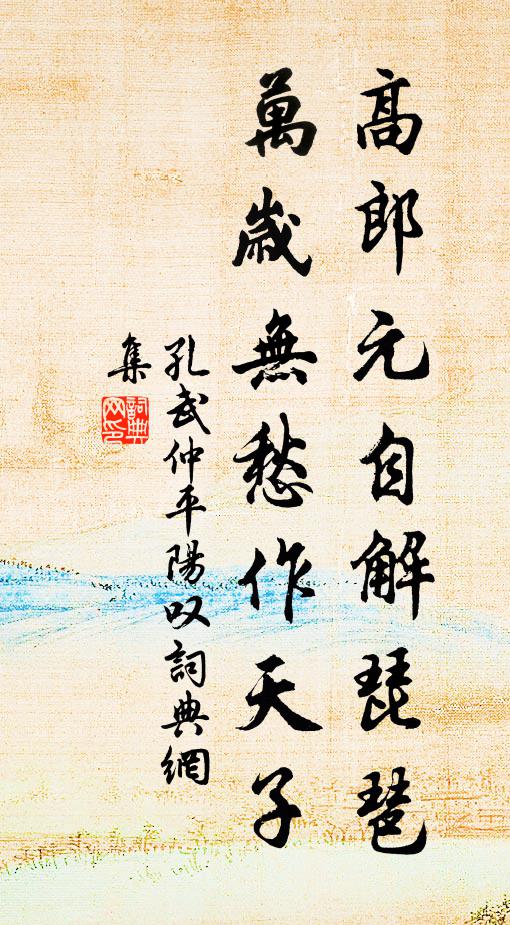 高郎元自解琵琶
萬歲無愁作天子
孔武仲平陽叹詞典網
集
詞典網印